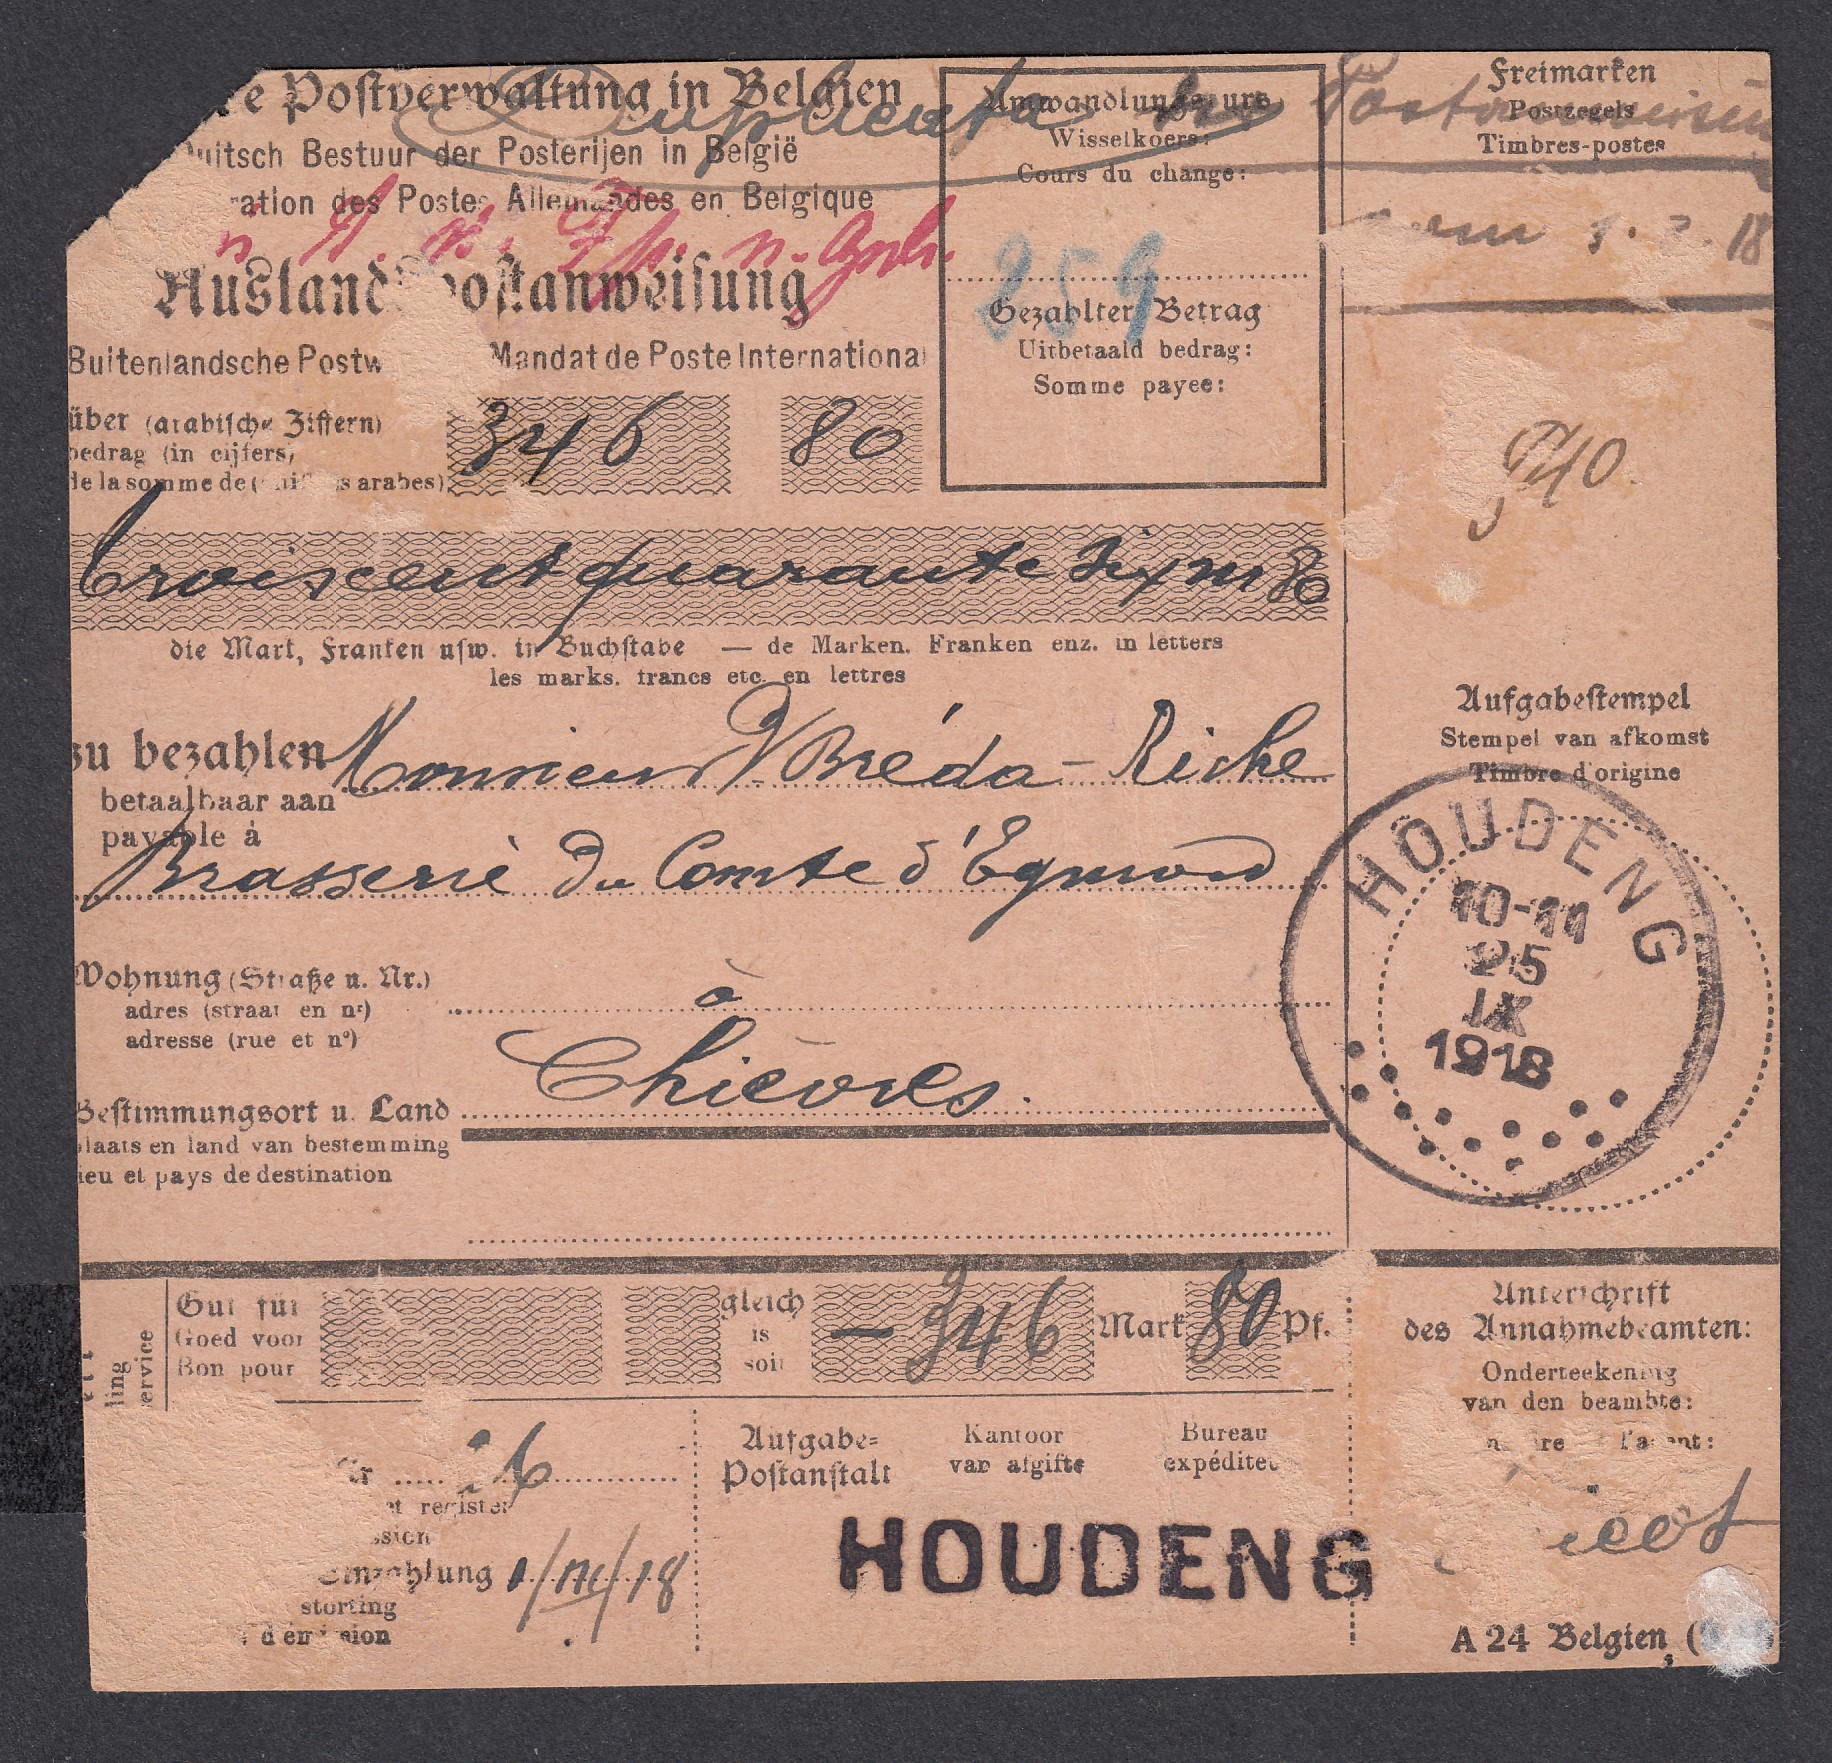 Postverwaltung in Belgien
Duplicata
Duitsch Bestuur der Posterijen in België
ration des Postes Allemandes en Belgique
Auslandspostanweisung
Buitenlandsche Postw Mandat de Poste International
Umwandlungskurs
Wisselkoers:
Cours du change:
259
Gezahlter Betrag
Uitbetaald bedrag:
Somme payee:
Freimarken
Postzegels
Timbres-postes
vom 1.3.18
über (arabische Ziffern)
bedrag (in cijfers)
de la somme de (chiffres arabes)
346 80
Trois cent quarante six m 80
die Mark, Franken usw. in Buchstabe — de Marken. Franken enz. in letters
les marks. francs etc. en lettres
zu bezahlen
betaalbaar aan
payable à
Monsieur V Bréda-Riche
Brasserie du Comte d'Egmond
Wohnung (Straße u. Nr.)
adres (straat en nr)
adresse (rue et n°)
à
Chièvres.
Bestimmungsort u. Land
plaats en land van bestemming
lieu et pays de destination
Aufgabestempel
Stempel van afkomst
Timbre d'origine
HOUDENG
10-11
25
IX
1918
Gut für
Goed voor
Bon pour
gleich
is
soit
— 346 Mark 80 Pf.
ling
ervice
Unterschrift
des Annahmebeamten:
Onderteekening
van den beambte:
l'agent:
Nr
register
Einzahlung
storting
d'émission
1/III/18
Aufgabe-
Postanstalt
Kantoor
van afgifte
Bureau
expéditeu
HOUDENG
A 24 Belgien (